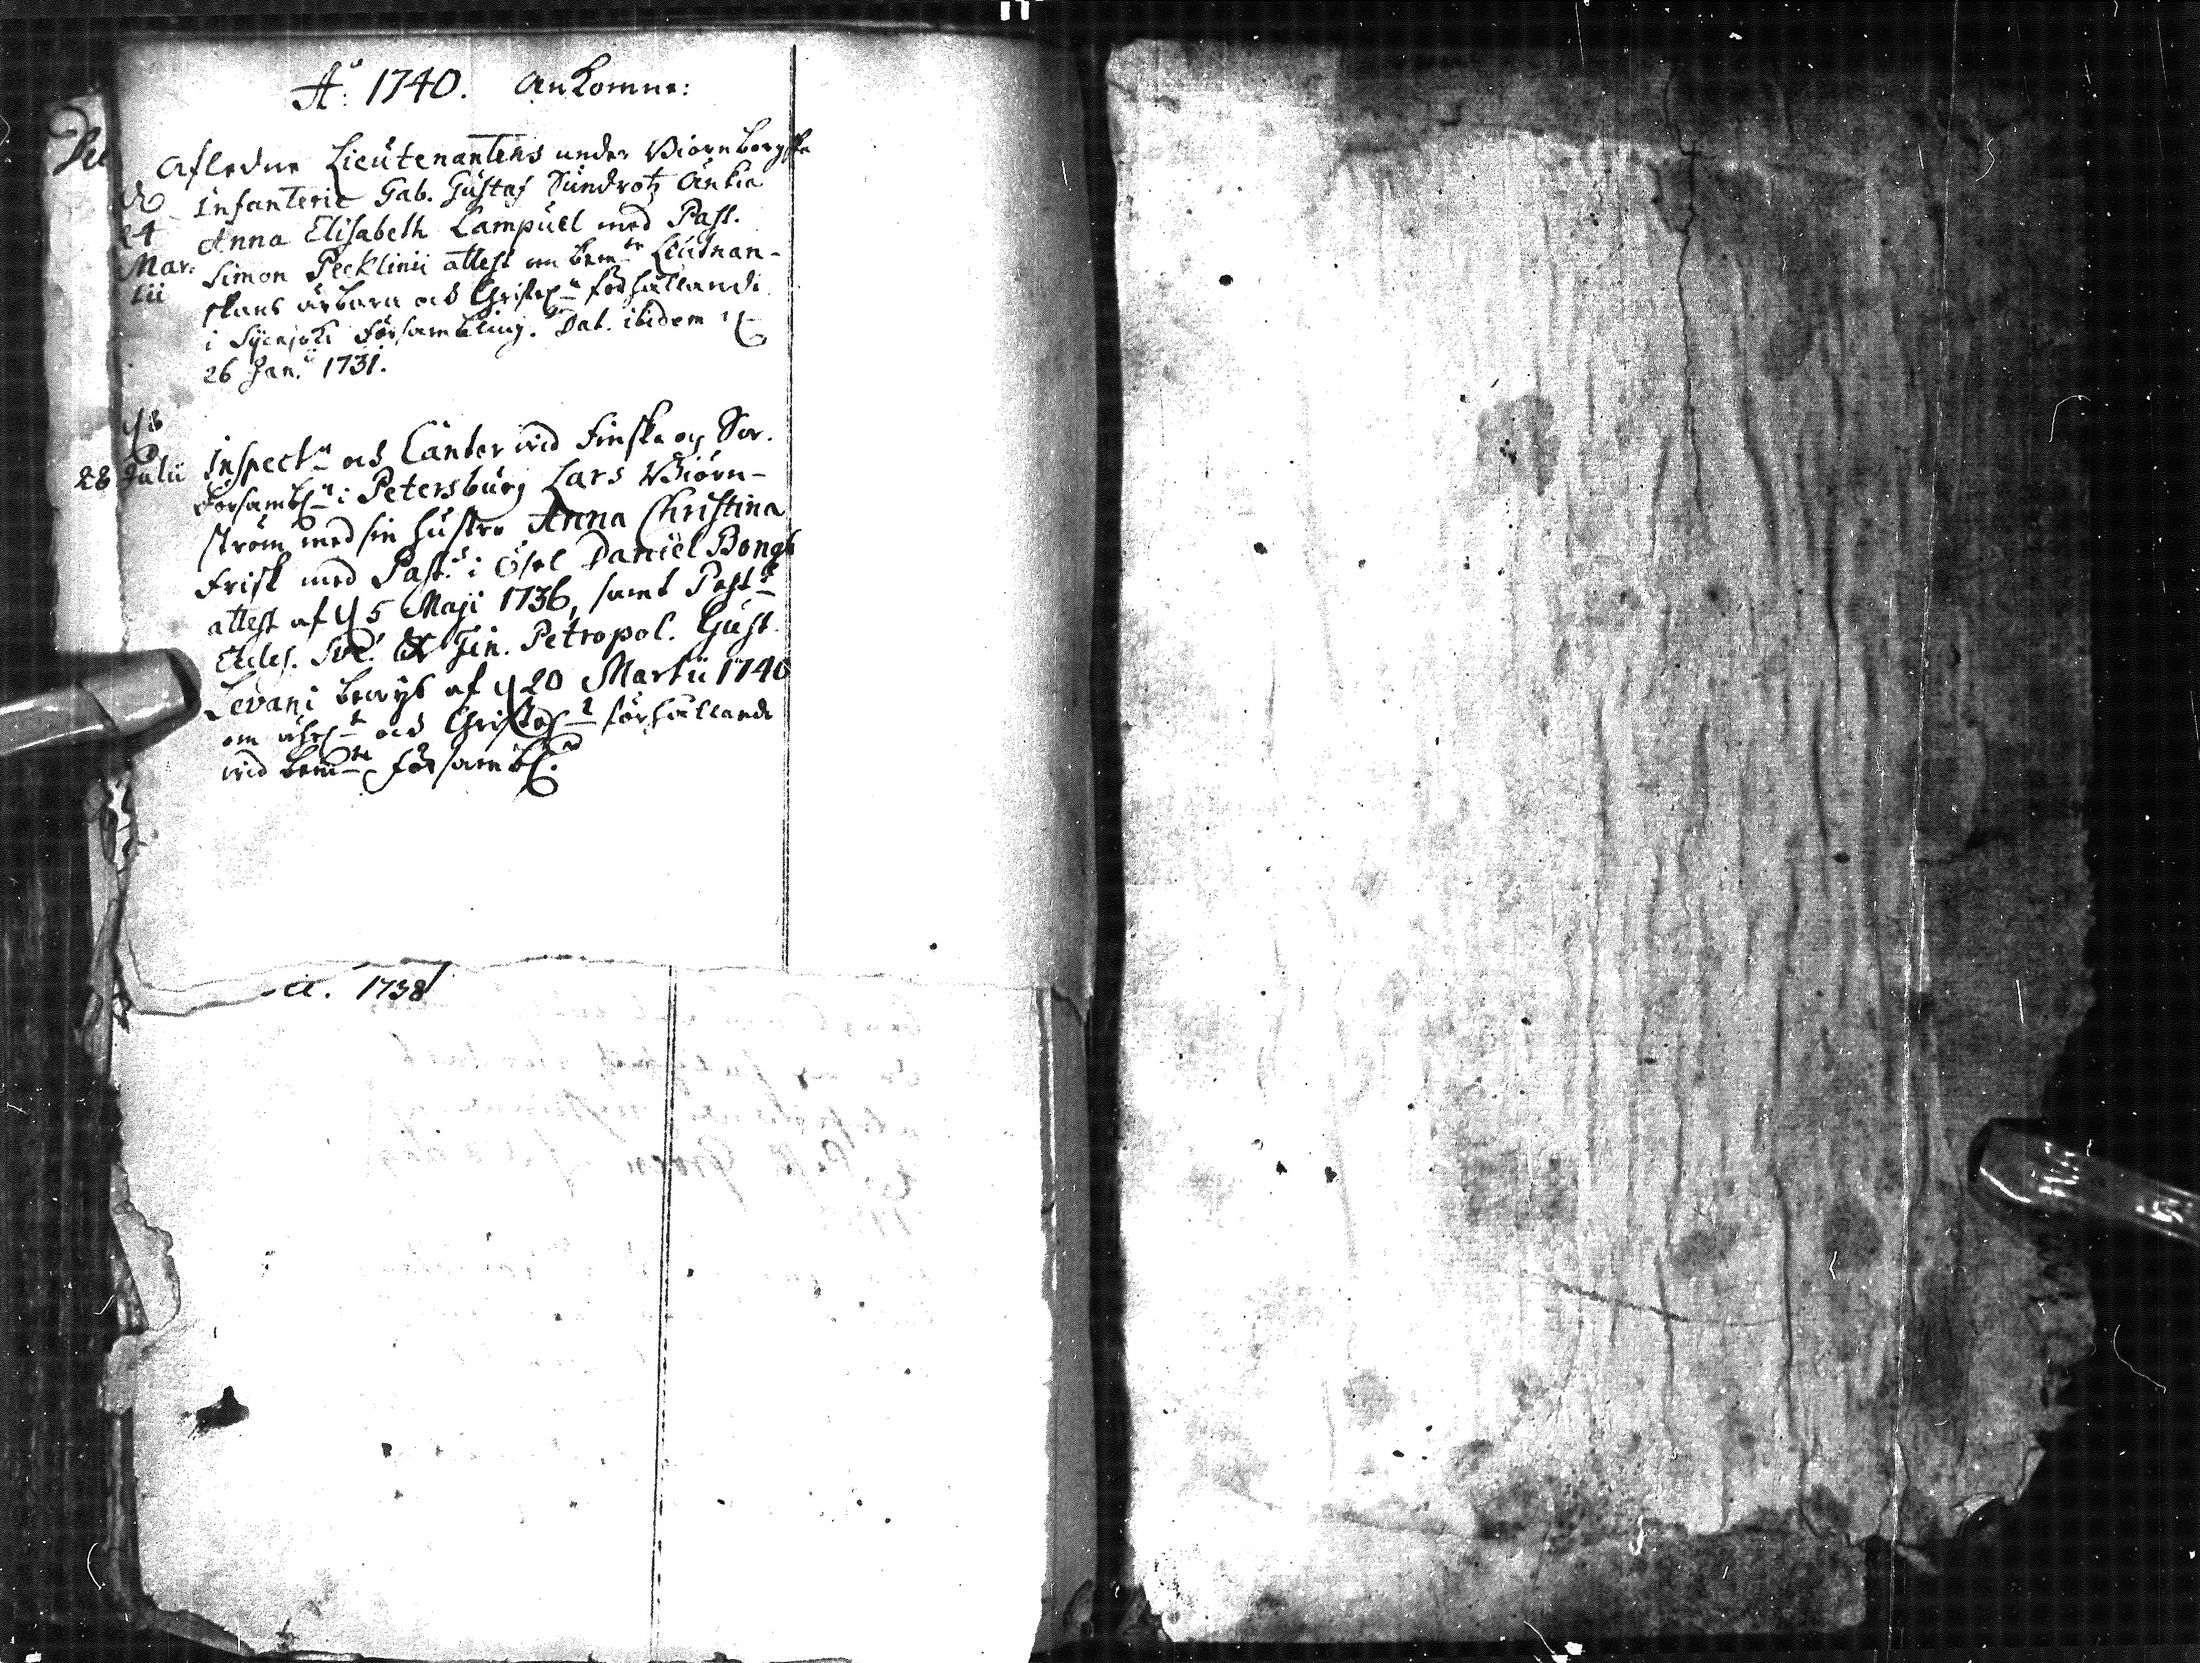 Aº: 1740. Ankomne:
Afledne Lieutenantens under Biörnborgske
d. Infanterie Gab. Gustaf Sundrotz Änkia
24 Anna Elisabeth Lampuel med Past.
Martii Simon Pecklinii attest om bemte Lieutnan-
skans ärbara och Christel. förhållande
i församling. Dat. ibidem d.
26 Jan. 1731.
d.
28 Julii Inspect. och Cantor wid Finska og Sw.
Församl. i Petersburg Lars Biörn-
ström med sin hustro Anna Christina
Frisk med Past. i Ösel Daniel Bong
attest af d 5 Maji 1736, samt Past.
Eccles. Sve. & Fin. Petropol. Gust.
Levani bewijs af d 20 Martii 1740
om och Christel. förhållande
wid bemte försambl.
A. 1738